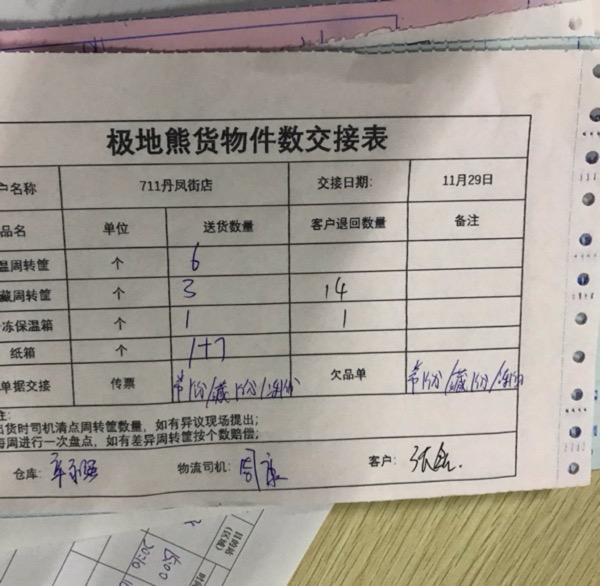 极地熊货物件数交接表
户名称 711丹凤街店 交接日期: 11月29日
品名 单位 送货数量 客户退回数量 备注
温周转筐 个 6
藏周转筐 个 3 14
冻保温箱 个 1 1
纸箱 个 1+7
单据交接 传票 常1份/藏1份/冻1份 欠品单 常1份/藏1份/冻1份
注:
出货时司机清点周转筐数量,如有异议现场提出;
每周进行一次盘点,如有差异周转筐按个数赔偿;
仓库: 物流司机: 周康 客户:
目的站
(区域)